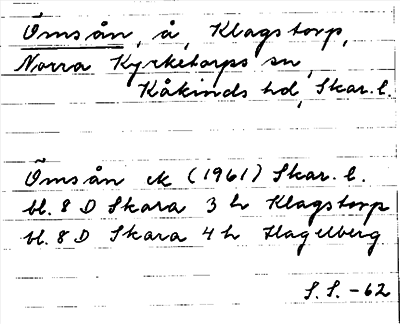 Ömsån, å, Klagstorp,
Norra Kyrketorps sn,
Kåkinds hd, Skar. l.
Ömsån ek (1961) Skar. l.
bl. 8 D Skara 3 h Klagstorp
bl. 8 D Skara 4 h Hagelberg
S. S. -62